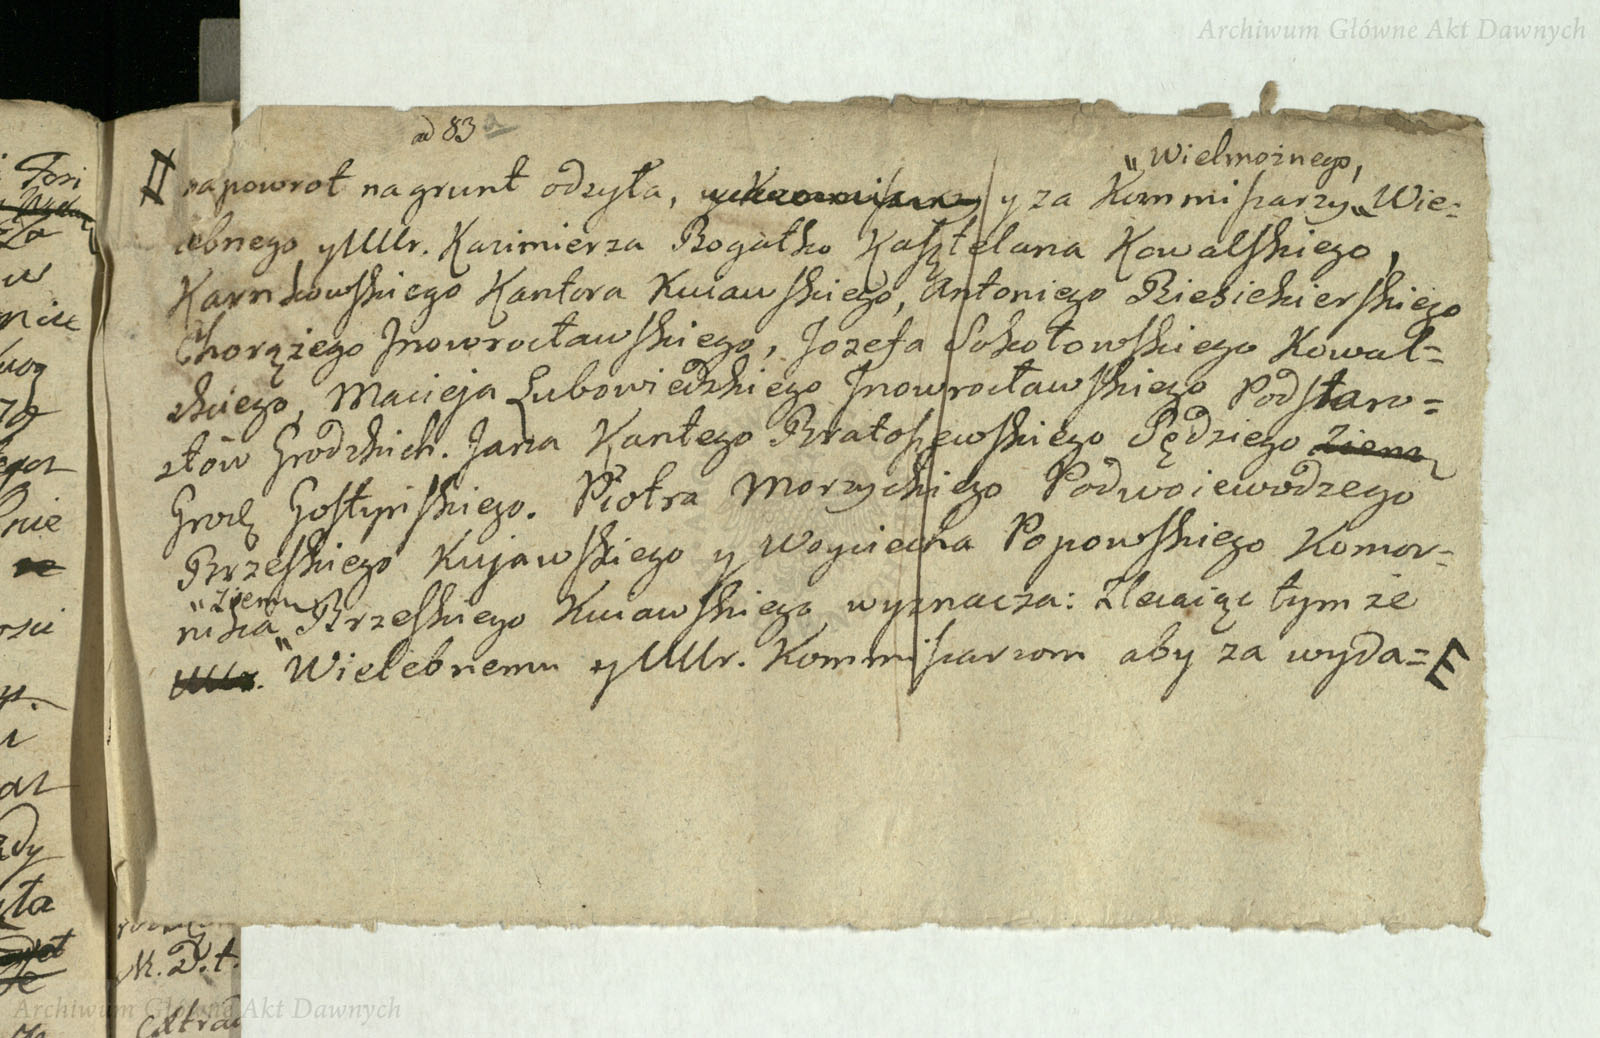 Archiwum Główne Akt Dawnych
ad 83 a
„Wielmożnego,
# napowrot na grunt odsyła, y za Kommissarzy „Wie=
lebnego y UUr. Kazimierza Bogatko Kasztelana Kowalskiego,
Karnkowskiego Kantora Kuiawskiego, Antoniego Biesiekierskiego
Chorążego Jnowrocławskiego, Jozefa Sokołowskiego Kowal=
skiego, Macieja Lubowiedzkiego Jnowrocławskiego Podstaro=
stów Grodzkich. Jana Kantego Bratoszewskiego Sędziego Ziem
Grodz Gostyńskiego. Piotra Morzyckiego Podwoiewodzego
Brzeskiego Kujawskiego y Woyciecha Popowskiego Komor=
„Ziem
nika „Brzeskiego Kuiawskiego wyznacza: Zlecaiąc tymże
UUr. Wielebnemu y UUr. Kommissarzom aby za wyda= E
M. D. t.
Archiwum Główne Akt Dawnych